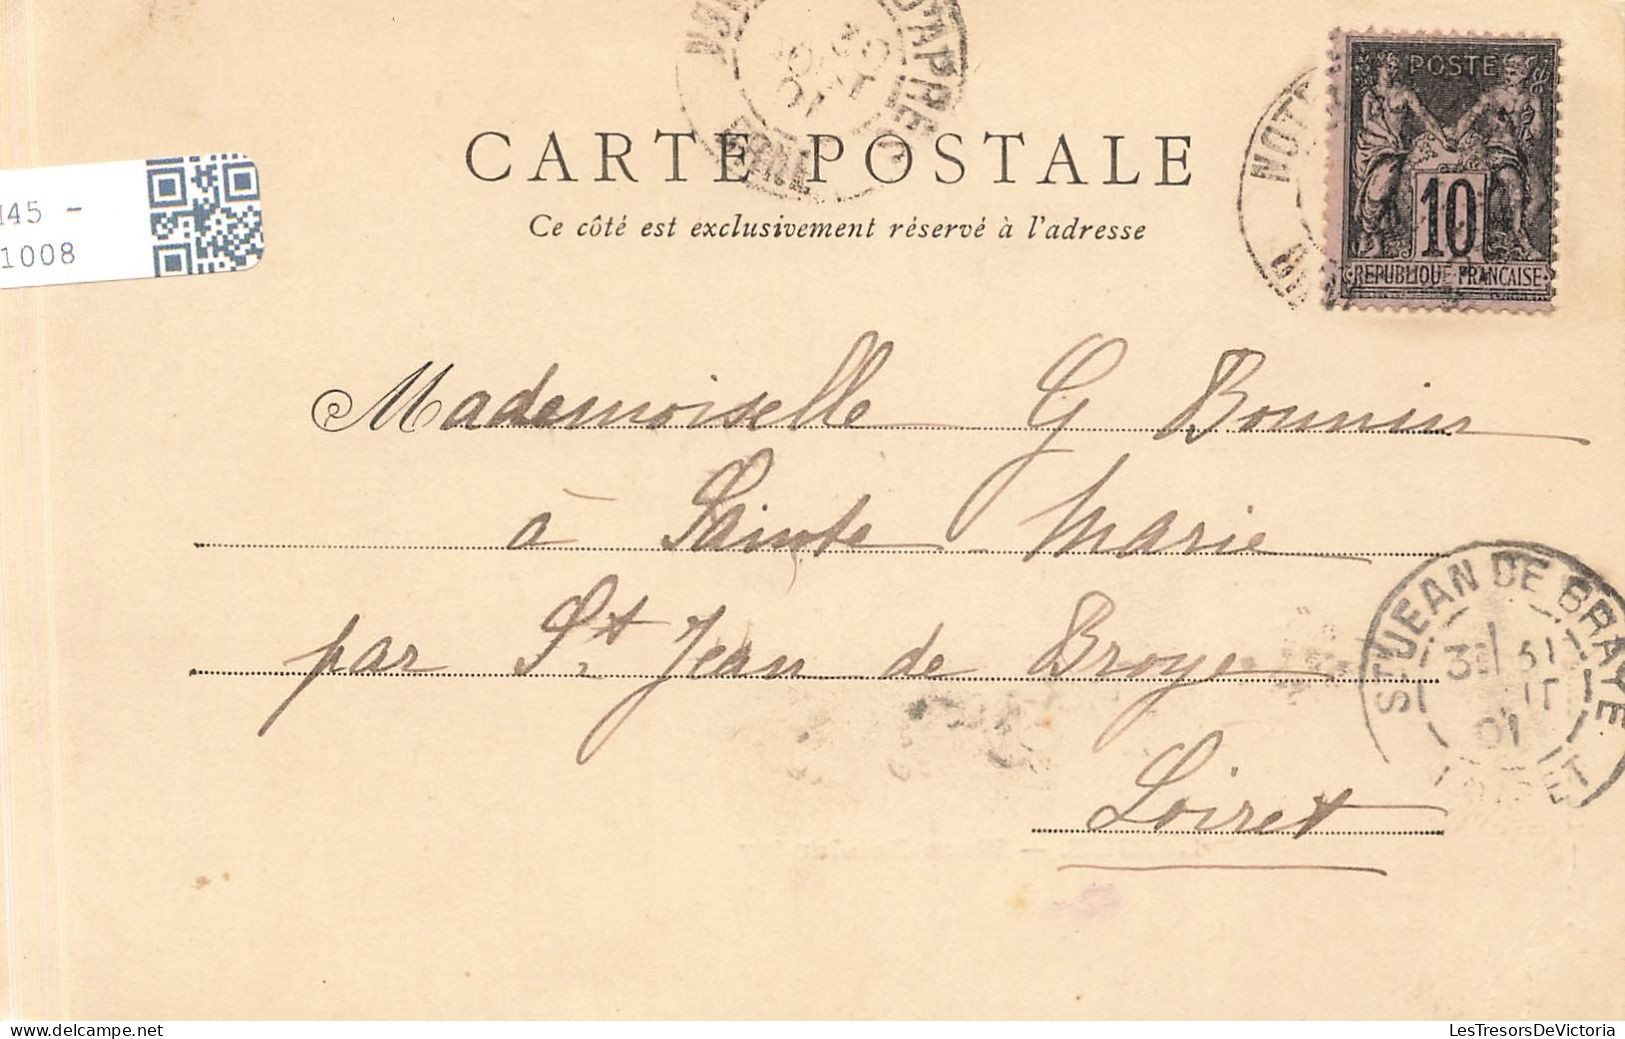 CARTE POSTALE
Ce côté est exclusivement réservé à l'adresse
POSTE
10
REPUBLIQUE FRANCAISE
145 -
1008
Mademoiselle G Bonnin
à Sainte Marie
par St Jean de Broye
Loiret
ST JEAN DE BRAYE
01
LOIRET
LesTresorsDeVictoria